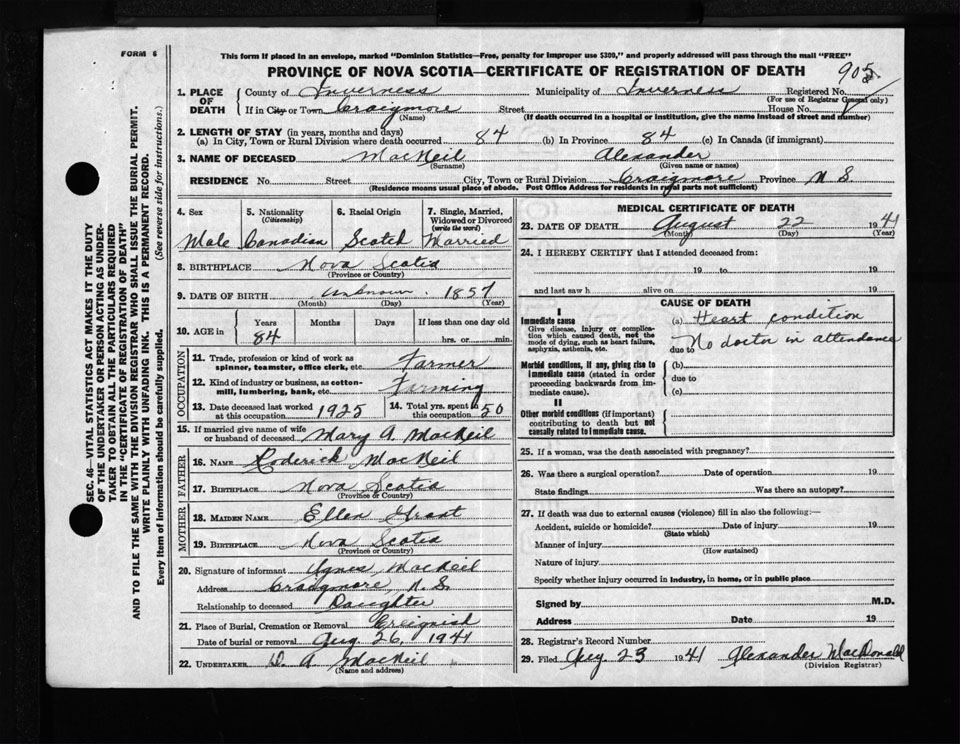 FORM 6
This form if placed in an envelope, marked "Dominion Statistics—Free, penalty for improper use $300," and properly addressed will pass through the mail "FREE"
PROVINCE OF NOVA SCOTIA—CERTIFICATE OF REGISTRATION OF DEATH
905
1. PLACE OF DEATH County of Inverness Municipality of Inverness Registered No.
(For use of Registrar General only)
If in City or Town Craigmore Street House No.
(Name) (If death occurred in a hospital or institution, give the name instead of street and number)
2. LENGTH OF STAY (in years, months and days)
(a) In City, Town or Rural Division where death occurred 84 (b) In Province 84 (c) In Canada (if immigrant)
3. NAME OF DECEASED MacNeil Alexander
(Surname) (Given name or names)
RESIDENCE No. Street City, Town or Rural Division Craigmore Province N S
(Residence means usual place of abode. Post Office Address for residents in rural parts not sufficient)
4. Sex 5. Nationality (Citizenship) 6. Racial Origin 7. Single, Married, Widowed or Divorced (write the word)
Male Canadian Scotch Married
8. BIRTHPLACE Nova Scotia
(Province or Country)
9. DATE OF BIRTH unknown 1857
(Month) (Day) (Year)
10. AGE in Years Months Days If less than one day old
84 hrs. or min.
OCCUPATION
11. Trade, profession or kind of work as spinner, teamster, office clerk, etc. Farmer
12. Kind of industry or business, as cotton-mill, lumbering, bank, etc. Farming
13. Date deceased last worked at this occupation 1925 14. Total yrs. spent in this occupation 50
15. If married give name of wife or husband of deceased Mary A. MacNeil
FATHER
16. NAME Roderick MacNeil
17. BIRTHPLACE Nova Scotia
(Province or Country)
MOTHER
18. MAIDEN NAME Ellen Grant
19. BIRTHPLACE Nova Scotia
(Province or Country)
20. Signature of informant Agnes MacNeil
Address Craigmore, N. S.
Relationship to deceased Daughter
21. Place of Burial, Cremation or Removal Creignish
Date of burial or removal Aug. 26, 1941
22. UNDERTAKER D. A. MacNeil
(Name and address)
MEDICAL CERTIFICATE OF DEATH
23. DATE OF DEATH August 22 1941
(Month) (Day) (Year)
24. I HEREBY CERTIFY that I attended deceased from:
19 to 19
and last saw h alive on 19
CAUSE OF DEATH
I
Immediate cause (a) Heart condition
Give disease, injury or complication which caused death, not the mode of dying, such as heart failure, asphyxia, asthenia, etc.
due to No doctor in attendance
Morbid conditions, if any, giving rise to immediate cause (stated in order proceeding backwards from immediate cause). (b)
due to
(c)
II
Other morbid conditions (if important) contributing to death but not causally related to immediate cause.
25. If a woman, was the death associated with pregnancy?
26. Was there a surgical operation? Date of operation 19
State findings Was there an autopsy?
27. If death was due to external causes (violence) fill in also the following:—
Accident, suicide or homicide? Date of injury 19
(State which)
Manner of injury
(How sustained)
Nature of injury
Specify whether injury occurred in industry, in home, or in public place
Signed by M.D.
Address Date 19
28. Registrar's Record Number
29. Filed Aug 23 1941 Alexander MacDonald
(Division Registrar)
SEC. 46—VITAL STATISTICS ACT MAKES IT THE DUTY
OF THE UNDERTAKER OR PERSON ACTING AS UNDER-
TAKER TO OBTAIN ALL THE PARTICULARS REQUIRED
IN THE "CERTIFICATE OF REGISTRATION OF DEATH"
AND TO FILE THE SAME WITH THE DIVISION REGISTRAR WHO SHALL ISSUE THE BURIAL PERMIT.
WRITE PLAINLY WITH UNFADING INK. THIS IS A PERMANENT RECORD.
Every item of information should be carefully supplied. (See reverse side for instructions.)